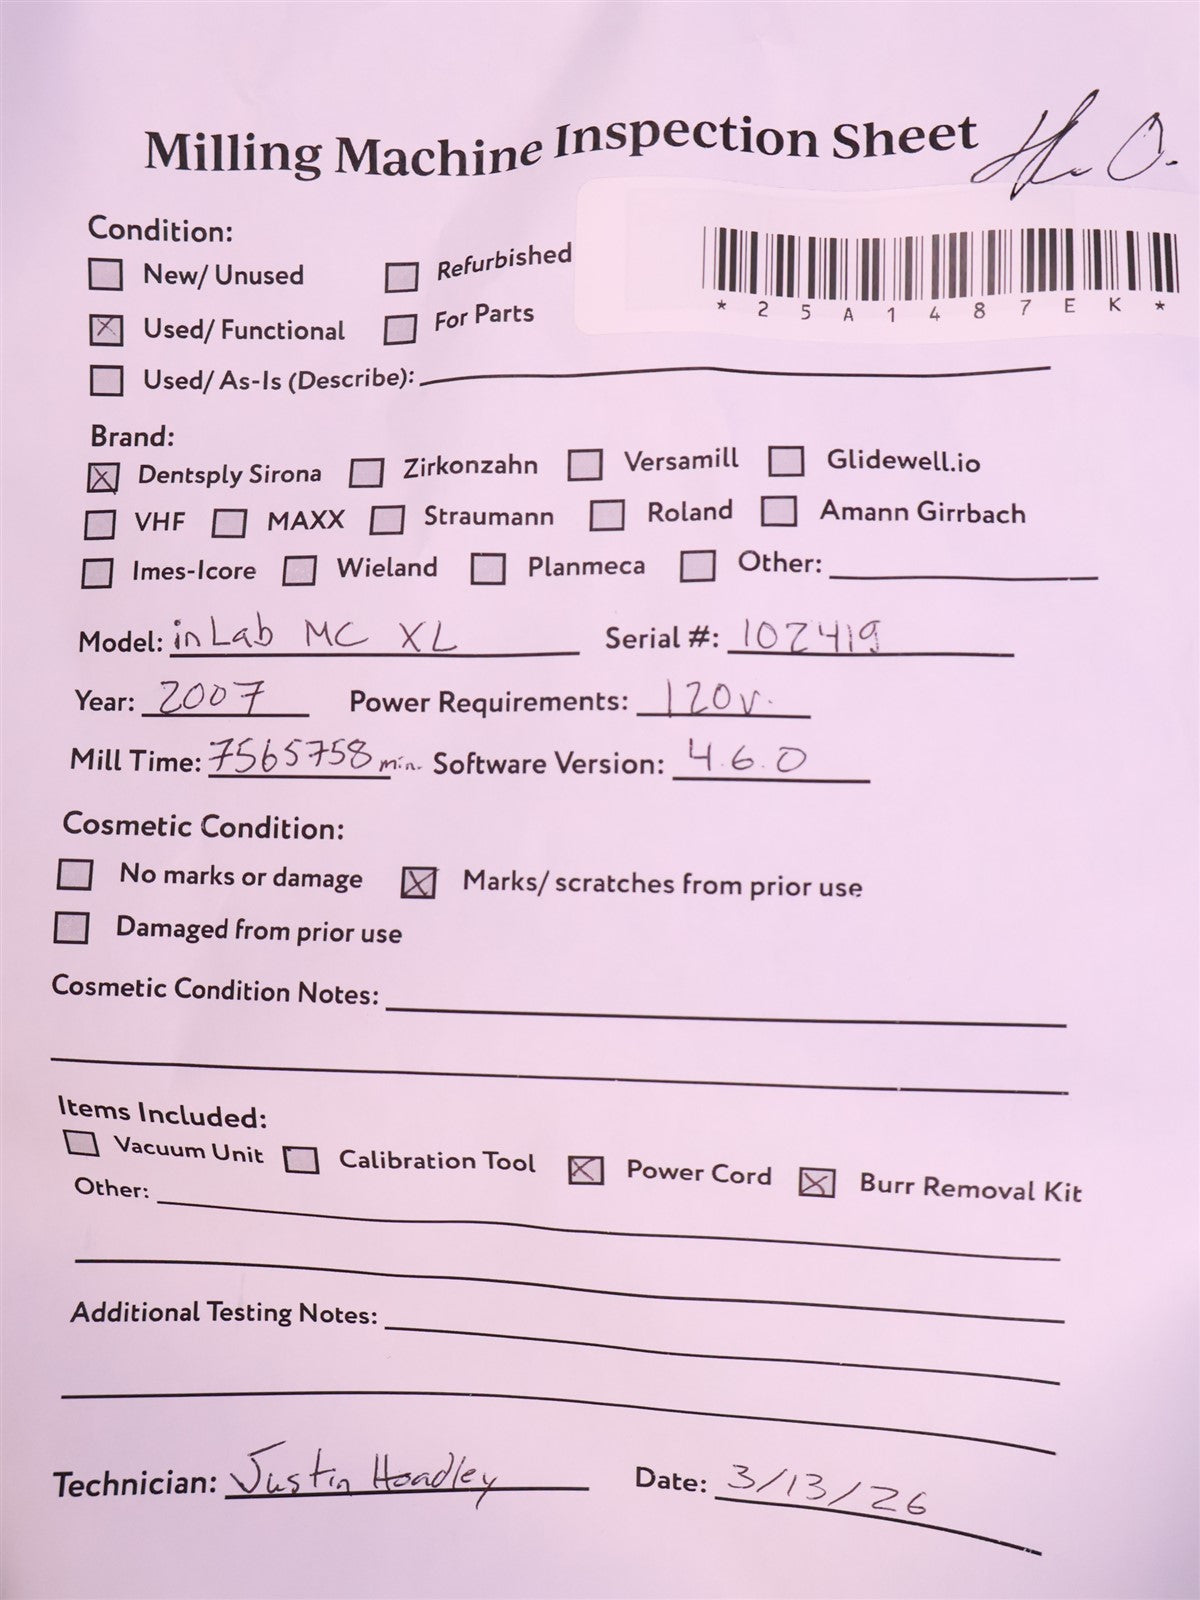 Milling Machine Inspection Sheet
Condition:
New/ Unused Refurbished
* 2 5 A 1 4 8 7 E K *
Used/ Functional For Parts
Used/ As-Is (Describe):
Brand:
Dentsply Sirona Zirkonzahn Versamill Glidewell.io
VHF MAXX Straumann Roland Amann Girrbach
Imes-Icore Wieland Planmeca Other:
Model: inLab MC XL Serial #: 102419
Year: 2007 Power Requirements: 120v.
Mill Time: 7565758 min. Software Version: 4.6.0
Cosmetic Condition:
No marks or damage Marks/ scratches from prior use
Damaged from prior use
Cosmetic Condition Notes:
Items Included:
Vacuum Unit Calibration Tool Power Cord Burr Removal Kit
Other:
Additional Testing Notes:
Technician: Justin Hoadley Date: 3/13/26